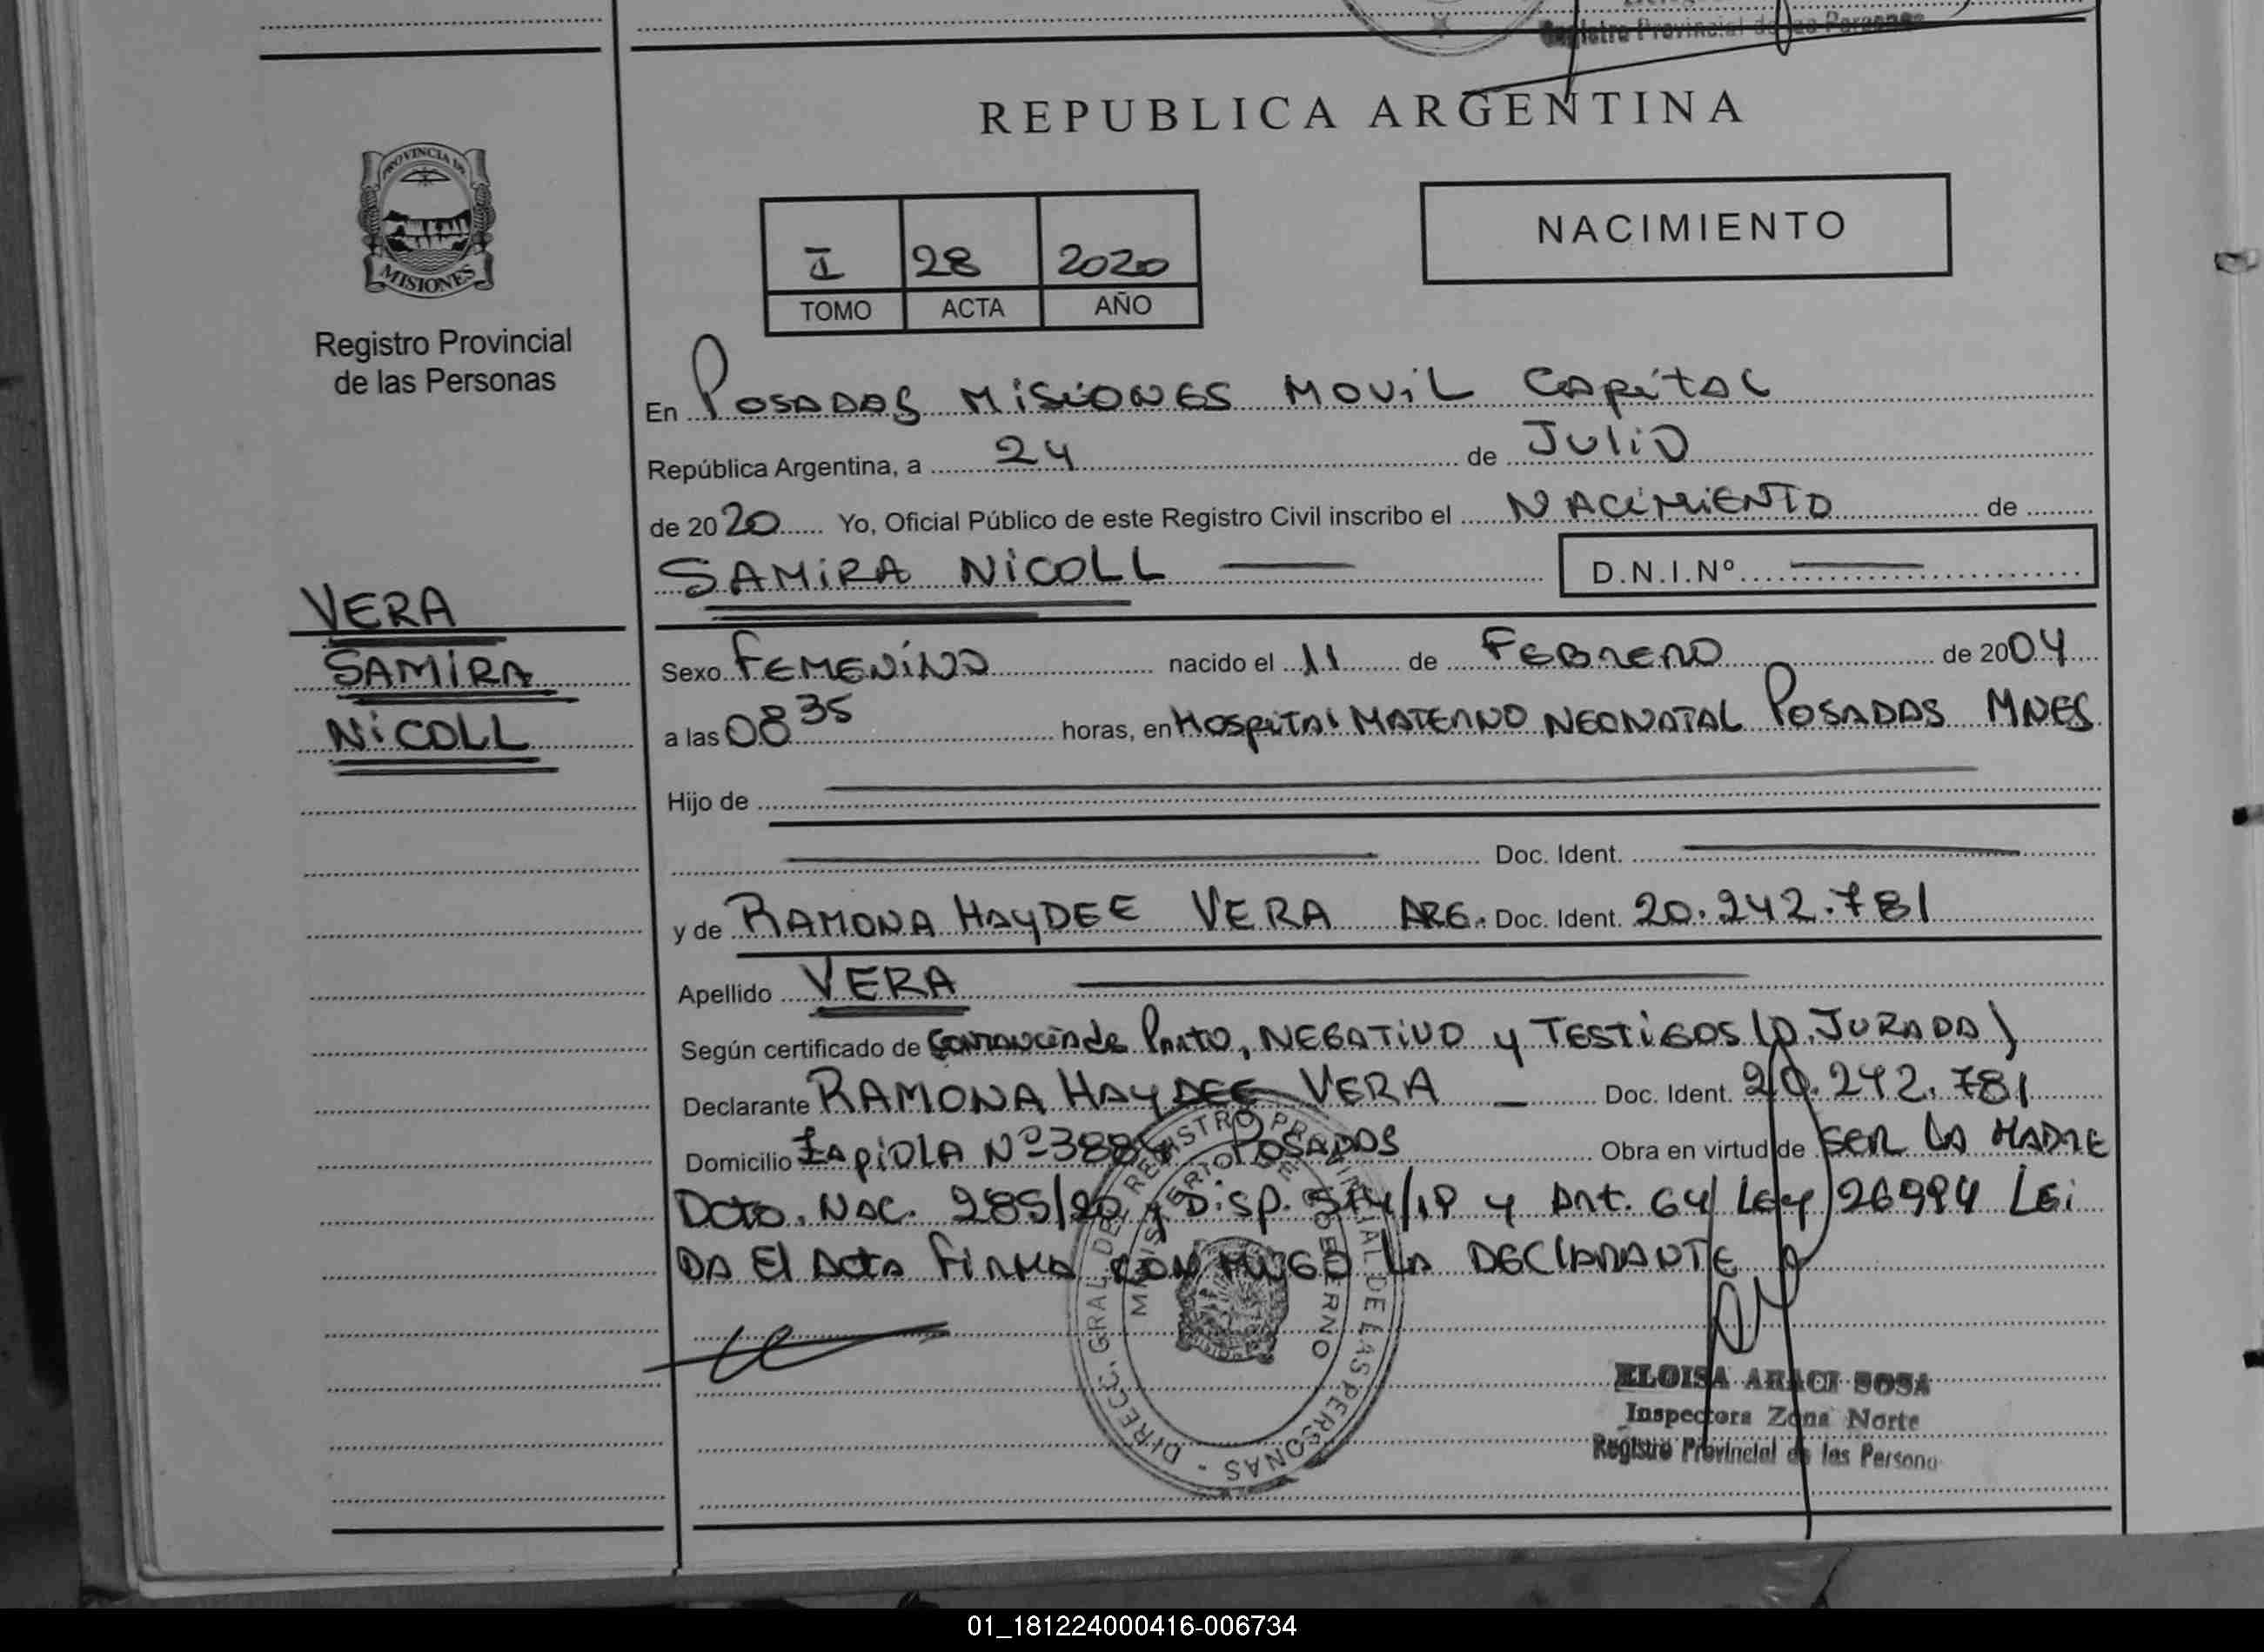 Registro Provincial de las Personas
REPUBLICA ARGENTINA
PROVINCIA DE
MISIONES
Registro Provincial
de las Personas
I 28 2020
TOMO ACTA AÑO
NACIMIENTO
En POSADAS MiSiONES MOViL CAPitAL
República Argentina, a 24 de JULiO
de 2020 Yo, Oficial Público de este Registro Civil inscribo el NACiMiENTO de
SAMiRA NiCOLL D.N.I.Nº
VERA
SAMiRA
NiCOLL
Sexo FEMENiNO nacido el 11 de FEBRERO de 2004
a las 08 35 horas, en HOSPiTAl MATERNO NEONATAL POSADAS MNES
Hijo de
Doc. Ident.
y de RAMONA HAYDEE VERA ARG. Doc. Ident. 20.242.781
Apellido VERA
Según certificado de Constancia de Parto, NEGATiVO y TESTiGOS (D. JURADA)
Declarante RAMONA HAYDEE VERA Doc. Ident. 20.242.781
Domicilio ZApiOLA Nº 3884 POSADAS Obra en virtud de SER LA MADRE
Dcto. Nac. 285/20 y Disp. /19 y Art. 64 Ley 26994 LEi
DA El Acta FiRMA CONMiGO LA DEClARANTE
DIRECC. GRAL. DEL REGISTRO PROVINCIAL DE LAS PERSONAS -
MINISTERIO DE GOBIERNO
ELOISA ARACI SOSA
Inspectora Zona Norte
Registro Provincial de las Persona
01_181224000416-006734